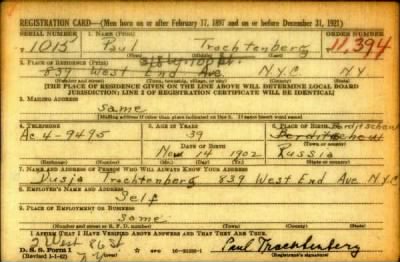 REGISTRATION CARD—(Men born on or after February 17, 1897 and on or before December 31, 1921)
SERIAL NUMBER 1. NAME (Print) ORDER NUMBER
1015 Paul Trachtenberg 11,394
2. PLACE OF RESIDENCE (Print)
839 West End Ave N.Y.C. N.Y
(Number and street) (Town, township, village, or city) (County) (State)
[THE PLACE OF RESIDENCE GIVEN ON THE LINE ABOVE WILL DETERMINE LOCAL BOARD
JURISDICTION; LINE 2 OF REGISTRATION CERTIFICATE WILL BE IDENTICAL]
3. MAILING ADDRESS
Same
[Mailing address if other than place indicated on line 2. If same insert word same]
4. TELEPHONE 5. AGE IN YEARS 6. PLACE OF BIRTH
Ac 4-9495 39
DATE OF BIRTH
Nov 14 1902 Russia
(Exchange) (Number) (Mo.) (Day) (Yr.) (State or country)
7. NAME AND ADDRESS OF PERSON WHO WILL ALWAYS KNOW YOUR ADDRESS
Dusia Trachtenberg 839 West End Ave N.Y.C
8. EMPLOYER'S NAME AND ADDRESS
Self
9. PLACE OF EMPLOYMENT OR BUSINESS
Same
(Number and street or R. F. D. number) (Town) (County) (State)
I AFFIRM THAT I HAVE VERIFIED ABOVE ANSWERS AND THAT THEY ARE TRUE.
2 West 86 St
D. S. S. Form 1 Paul Trachtenberg
(Revised 1-1-42) N.Y (Registrant's signature)